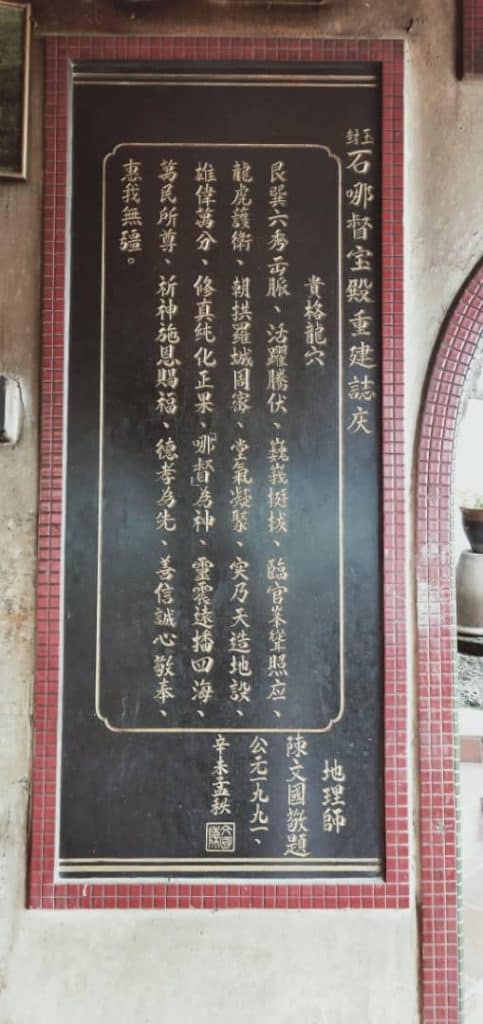 玉封石哪督宝殿重建誌庆
貴格龍穴
艮巽六秀岳脈、活躍騰伏、巍峩挺拔、臨官峯聳照应、
龍虎護衛、朝拱羅城周密、堂氣凝聚、实乃天造地設、
雄偉萬分、修真純化正果、「哪督」為神、靈震遠播四海、
萬民所尊、祈神施恩賜福、德孝為先、善信誠心敬奉、
惠我無疆。
地理師
陳文國敬題
公元一九九一、
辛未孟秋